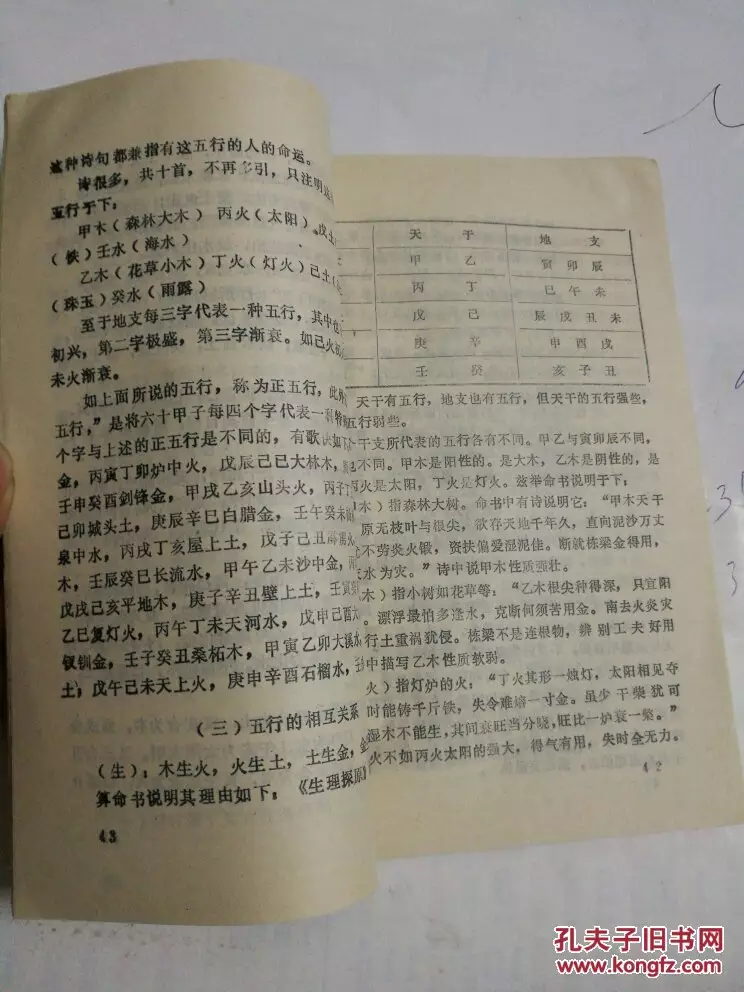 这种诗句都兼指有这五行的人的命运。
诗很多，共十首，不再多引，只注明
五行于下：
甲木（森林大木）丙火（太阳）戊土
（铁）壬水（海水）
乙木（花草小木）丁火（灯火）己土
（珠玉）癸水（雨露）
至于地支每三字代表一种五行，其中
初兴，第二字极盛，第三字渐衰。如巳火
未火渐衰。
如上面所说的五行，称为正五行，此
五行，”是将六十甲子每四个字代表一种特
个字与上述的正五行是不同的，有歌诀如
金，丙寅丁卯炉中火，戊辰己巳大林木，
壬申癸酉剑锋金，甲戌乙亥山头火，丙子丁
己卯城头土，庚辰辛巳白腊金，壬午癸未
泉中水，丙戌丁亥屋上土，戊子己丑
木，壬辰癸巳长流水，甲午乙未沙中金，
戊戌己亥平地木，庚子辛丑壁上土，壬寅
乙巳复灯火，丙午丁未天河水，戊申己酉大
钗钏金，壬子癸丑桑柘木，甲寅乙卯大溪水
土；戊午己未天上火，庚申辛酉石榴水，
（三）五行的相互关系
（生）：木生火，火生土，土生金，金
算命书说明其理由如下：《生理探原》
43
天 干 地 支
甲 乙 寅 卯 辰
丙 丁 巳 午 未
戊 己 辰 戌 丑 未
庚 辛 申 酉 戌
壬 癸 亥 子 丑
天干有五行，地支也有五行，但天干的五行强些，
五行弱些。
干支所代表的五行各有不同。甲乙与寅卯辰不同，
不同。甲木是阳性的。是大木，乙木是阴性的，是
丙火是太阳，丁火是灯火。兹举命书说明于下：
木）指森林大树。命书中有诗说明它：“甲木天干
原无枝叶与根尖，欲存天地千年久，直向泥沙万丈
不劳炎火锻，资扶偏爱湿泥佳。断就栋梁金得用，
水为灾。”诗中说甲木性质强壮。
木）指小树如花草等：“乙木根尖种得深，只宜阳
漂浮最怕多逢水，克断何须苦用金。南去火炎灾
行土重涡犹侵。栋梁不是连根物，辨别工夫好用
中描写乙木性质软弱。
火）指灯炉的火：“丁火其形一烛灯，太阳相见夺
时能铸千斤铁，失令难熔一寸金。虽少干柴犹可
湿木不能生，其间衰旺当分晓，旺比一炉衰一檠。”
火不如丙火太阳的强大，得气有用，失时全无力。
42
孔夫子旧书网
www.kongfz.com